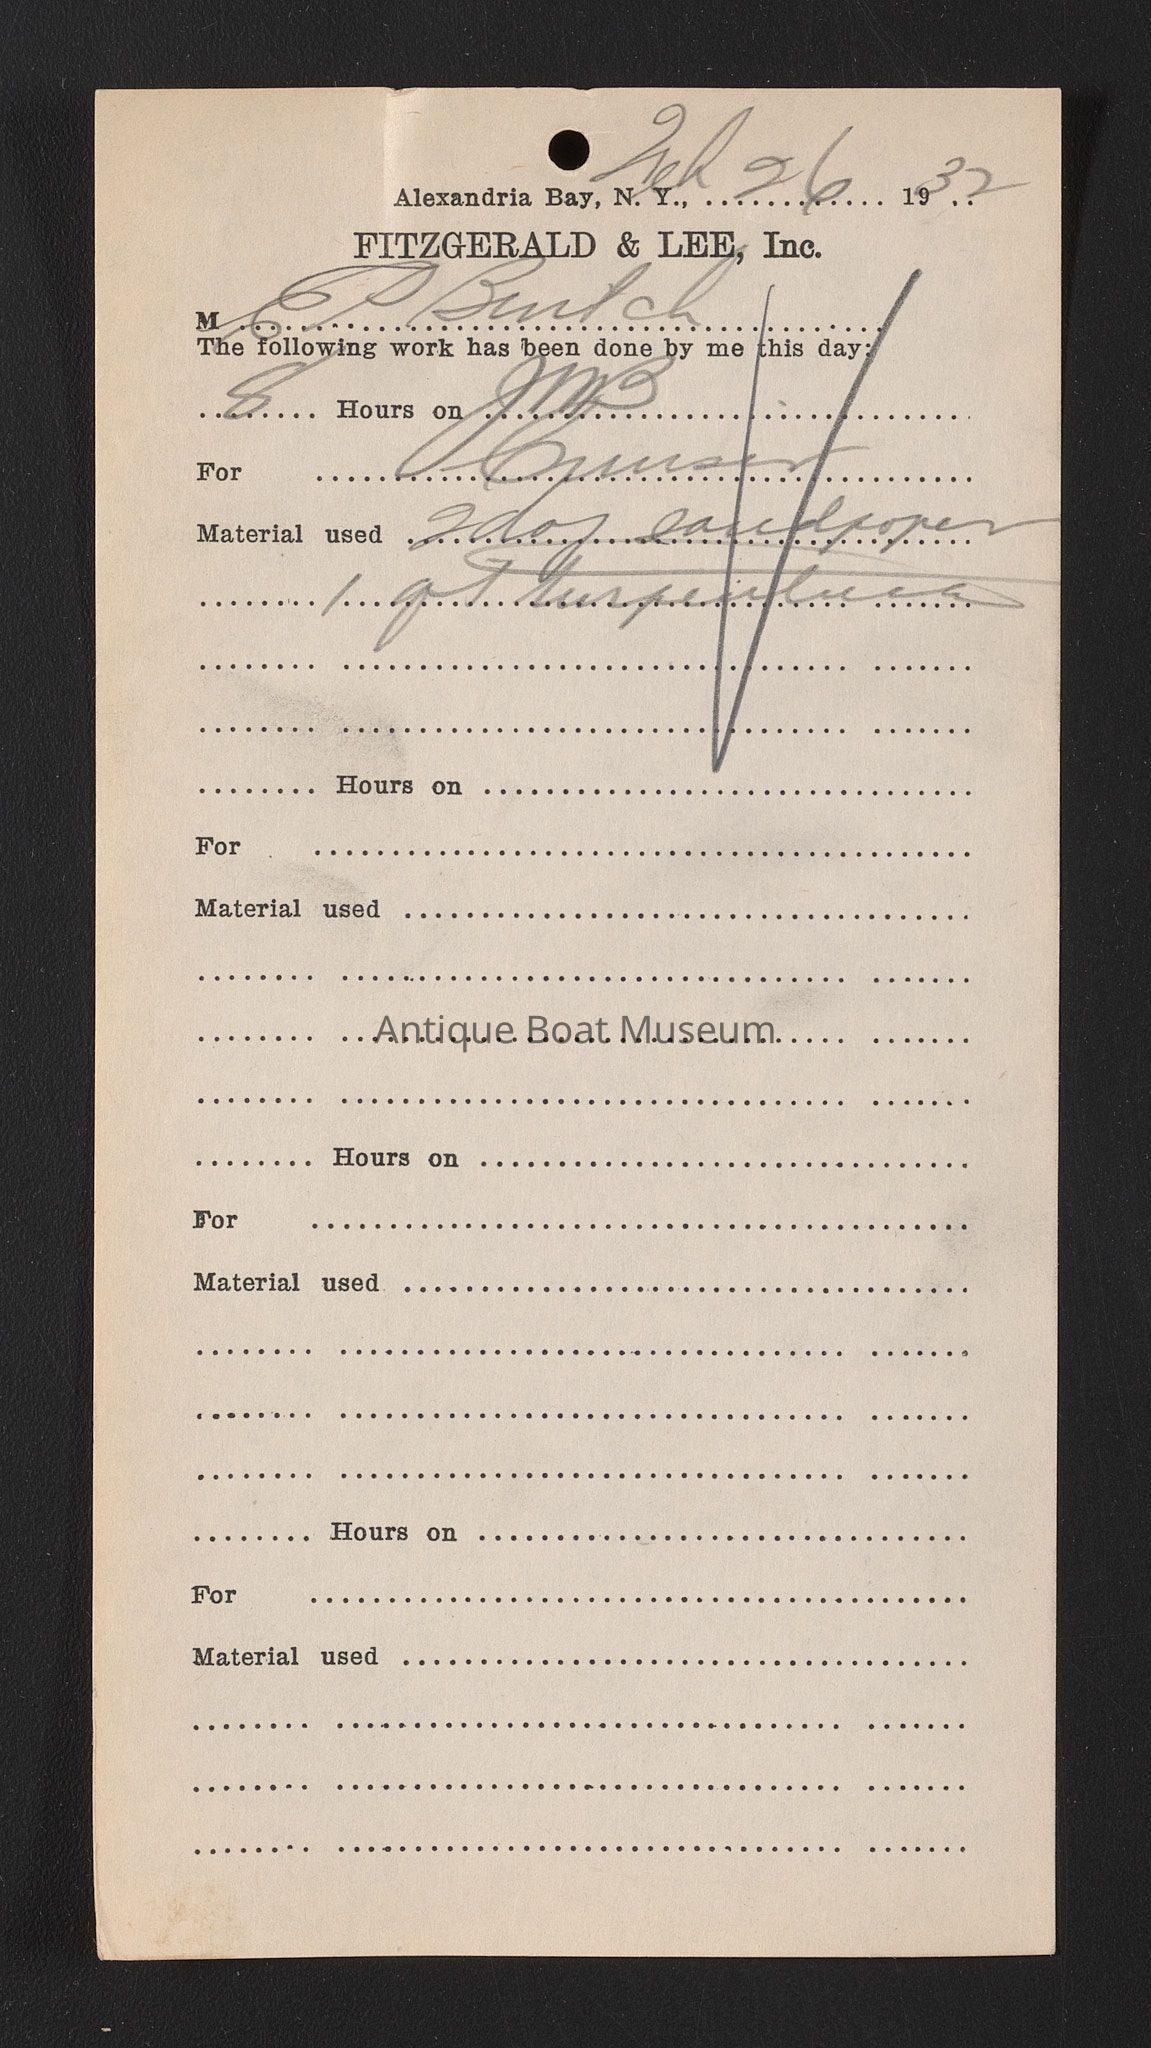 Alexandria Bay, N. Y., Feb 26 1932
FITZGERALD & LEE, Inc.
M E P Burtch
The following work has been done by me this day:
8 Hours on JMB
For Cruiser
Material used 2 doz sandpaper
1 qt turpentine
Hours on
For
Material used
Antique Boat Museum
Hours on
For
Material used
Hours on
For
Material used